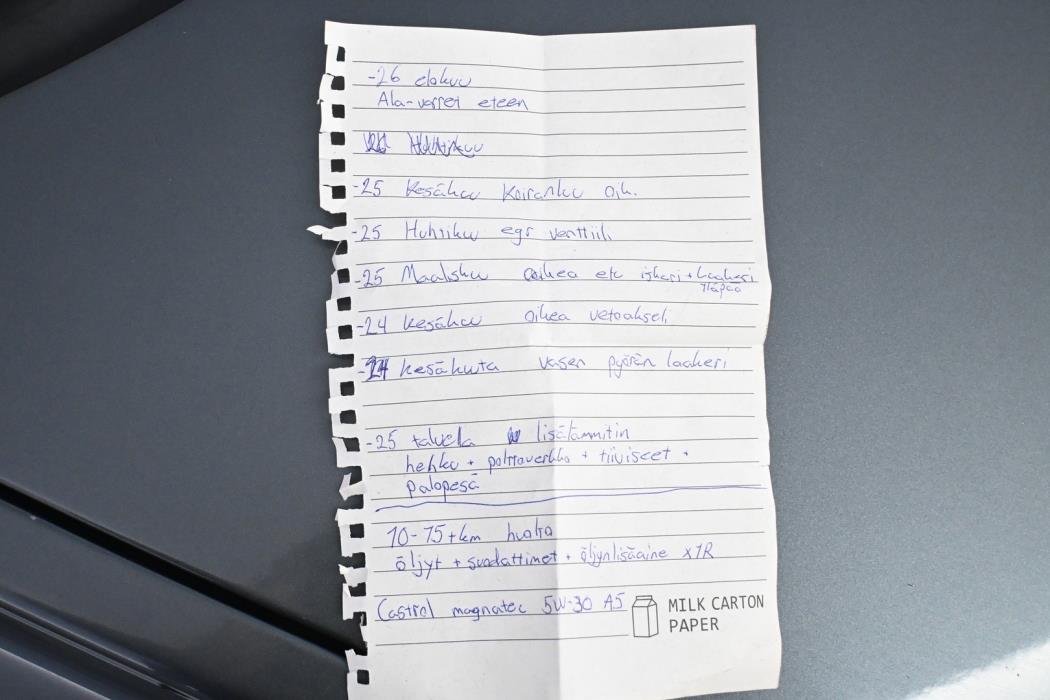 -26 elokuu
Ala-varret eteen
-25 Kesäkuu Koiranluu oik.
-25 Huhtiku egr venttiili
-25 Maalisku oikea etu iskari + Laakeri
Yläpää
-24 kesäkuu oikea vetoakseli
-24 kesäkuuta vasen pyörän laakeri
-25 talvella lisälämmitin
hehku + polttoverkko + tiivisteet +
palopesä
10-15tkm huolto
öljyt + suodattimet + öljynlisäaine X1R
Castrol magnatec 5W-30 A5
MILK CARTON
PAPER